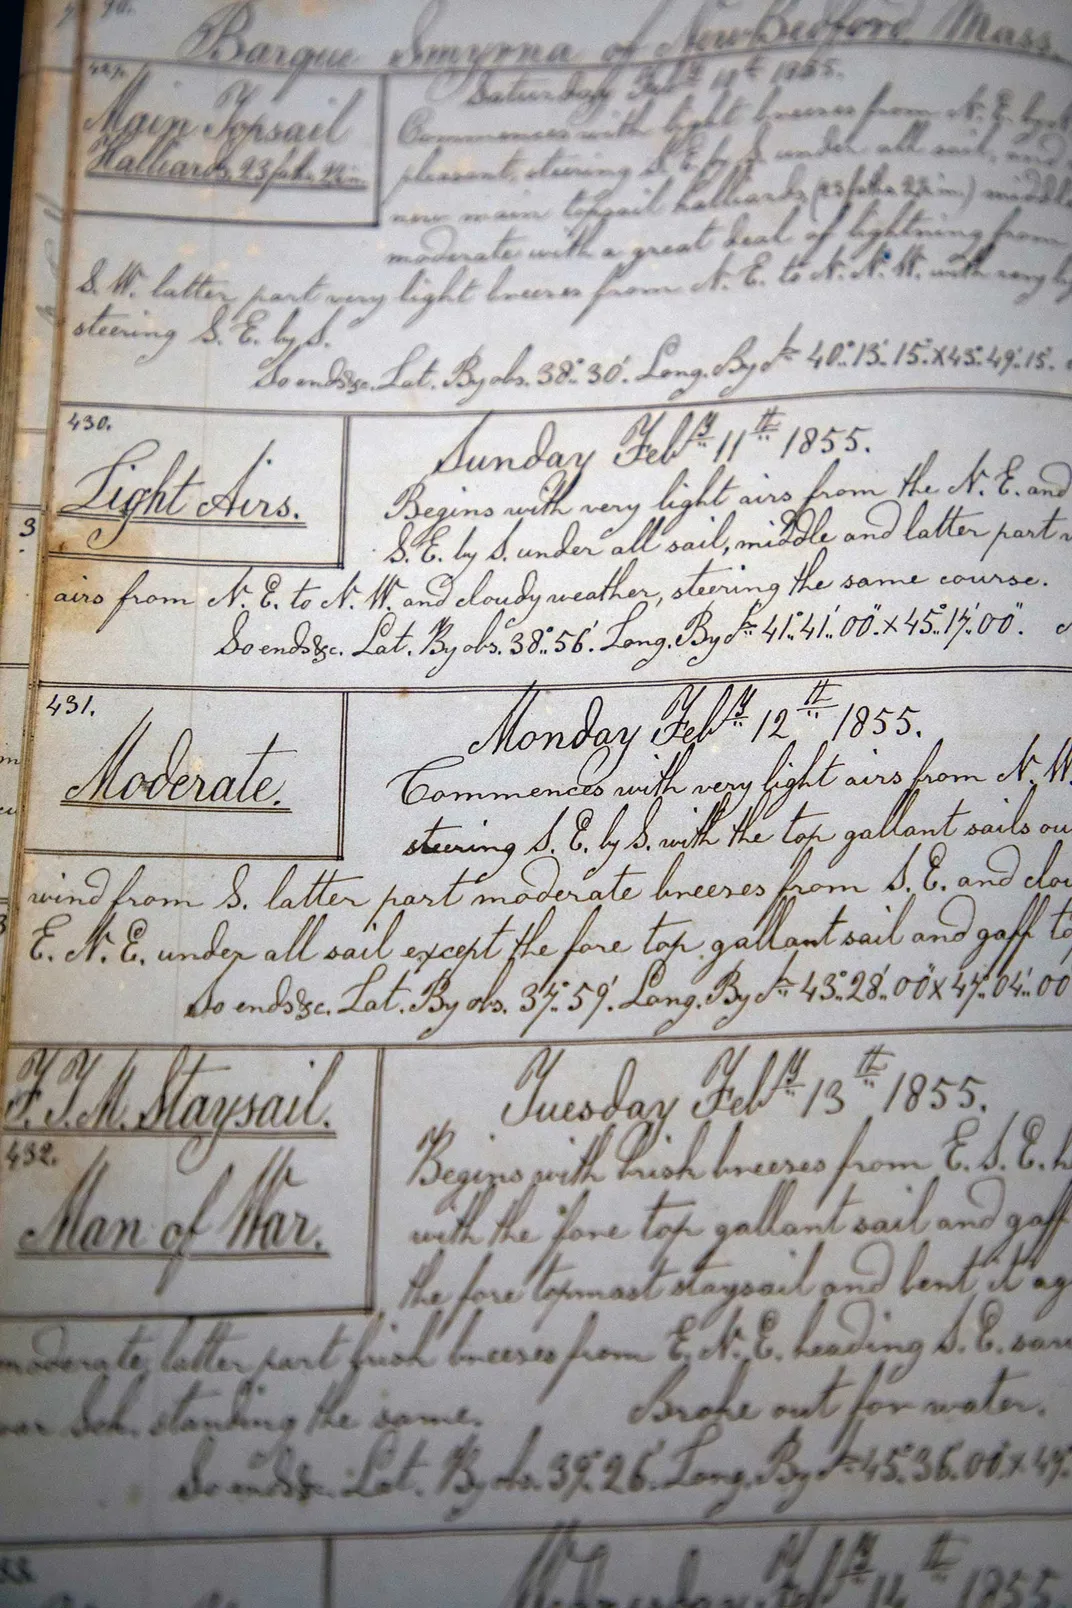 Barque Smyrna of New Bedford, Mass.
Main Topsail
Halliards, 23 faths. 2½ in.
Saturday Feb.ʸ 10th 1855.
Commences with light breezes from N. E. by
pleasant, steering S. E. by S. under all sail, and
new main topsail halliards, (23 faths. 2½ in.) middle
moderate with a great deal of lightning from
S. W. latter part very light breezes from N. E. to N. N. W. with very
steering S. E. by S.
So ends &c. Lat. By obs. 38°. 30'. Long. By 40°. 13'. 15". X 43°. 49'. 15".
430.
Light Airs.
Sunday Feb.ʸ 11th 1855.
Begins with very light airs from the N. E. and
S. E. by S. under all sail, middle and latter part
3
airs from N. E. to N. W. and cloudy weather, steering the same course.
So ends &c. Lat. By obs. 38°. 56'. Long. By 41°. 41'. 00". X 45°. 17'. 00".
431.
Moderate.
Monday Feb.ʸ 12th 1855.
Commences with very light airs from N. W.
steering S. E. by S. with the top gallant sails
wind from S. latter part moderate breezes from S. E. and
E. N. E. under all sail except the fore top gallant sail and gaff
So ends &c. Lat. By obs. 37°. 59'. Long. By 43°. 28'. 00" X 47°. 04'. 00
F. T. M. Staysail.
432.
Man of War.
Tuesday Feb.ʸ 13th 1855.
Begins with brisk breezes from E. S. E.
with the fore top gallant sail and gaff
the fore topmast staysail and bent it
moderate, latter part brisk breezes from E. N. E. heading S. E.
war Sch. standing the same. Broke out for water.
So ends &c. Lat. By obs. 39°. 26'. Long. By 45°. 36'. 00". X
Wednesday Feb.ʸ 14th 1855.